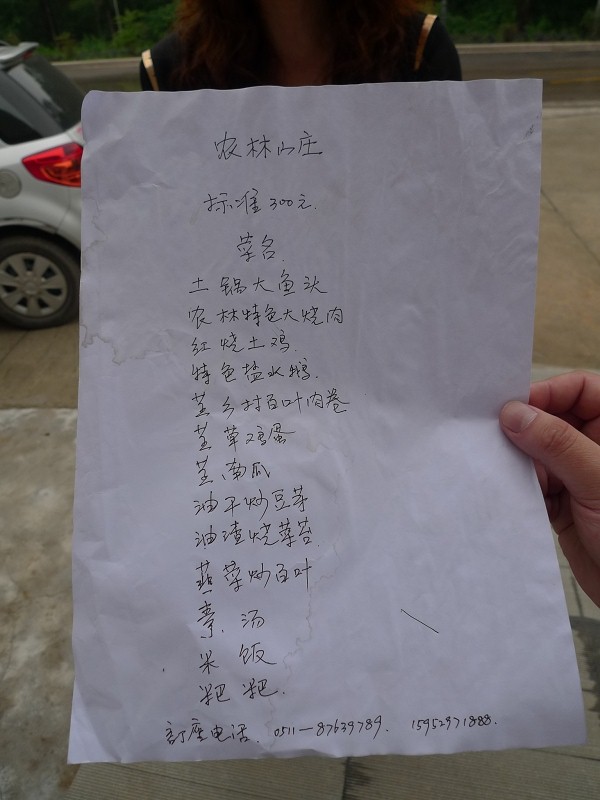 农林山庄
标准300元.
菜名.
土锅大鱼头
农林特色大烧肉
红烧土鸡.
特色盐水鹅.
蒸乡村百叶肉卷
蒸草鸡蛋
蒸南瓜
油干炒豆芽
油渣烧菜苔.
韭菜炒百叶
素汤
米饭
粑粑.
订座电话. 0511-87639789. 15952971888.